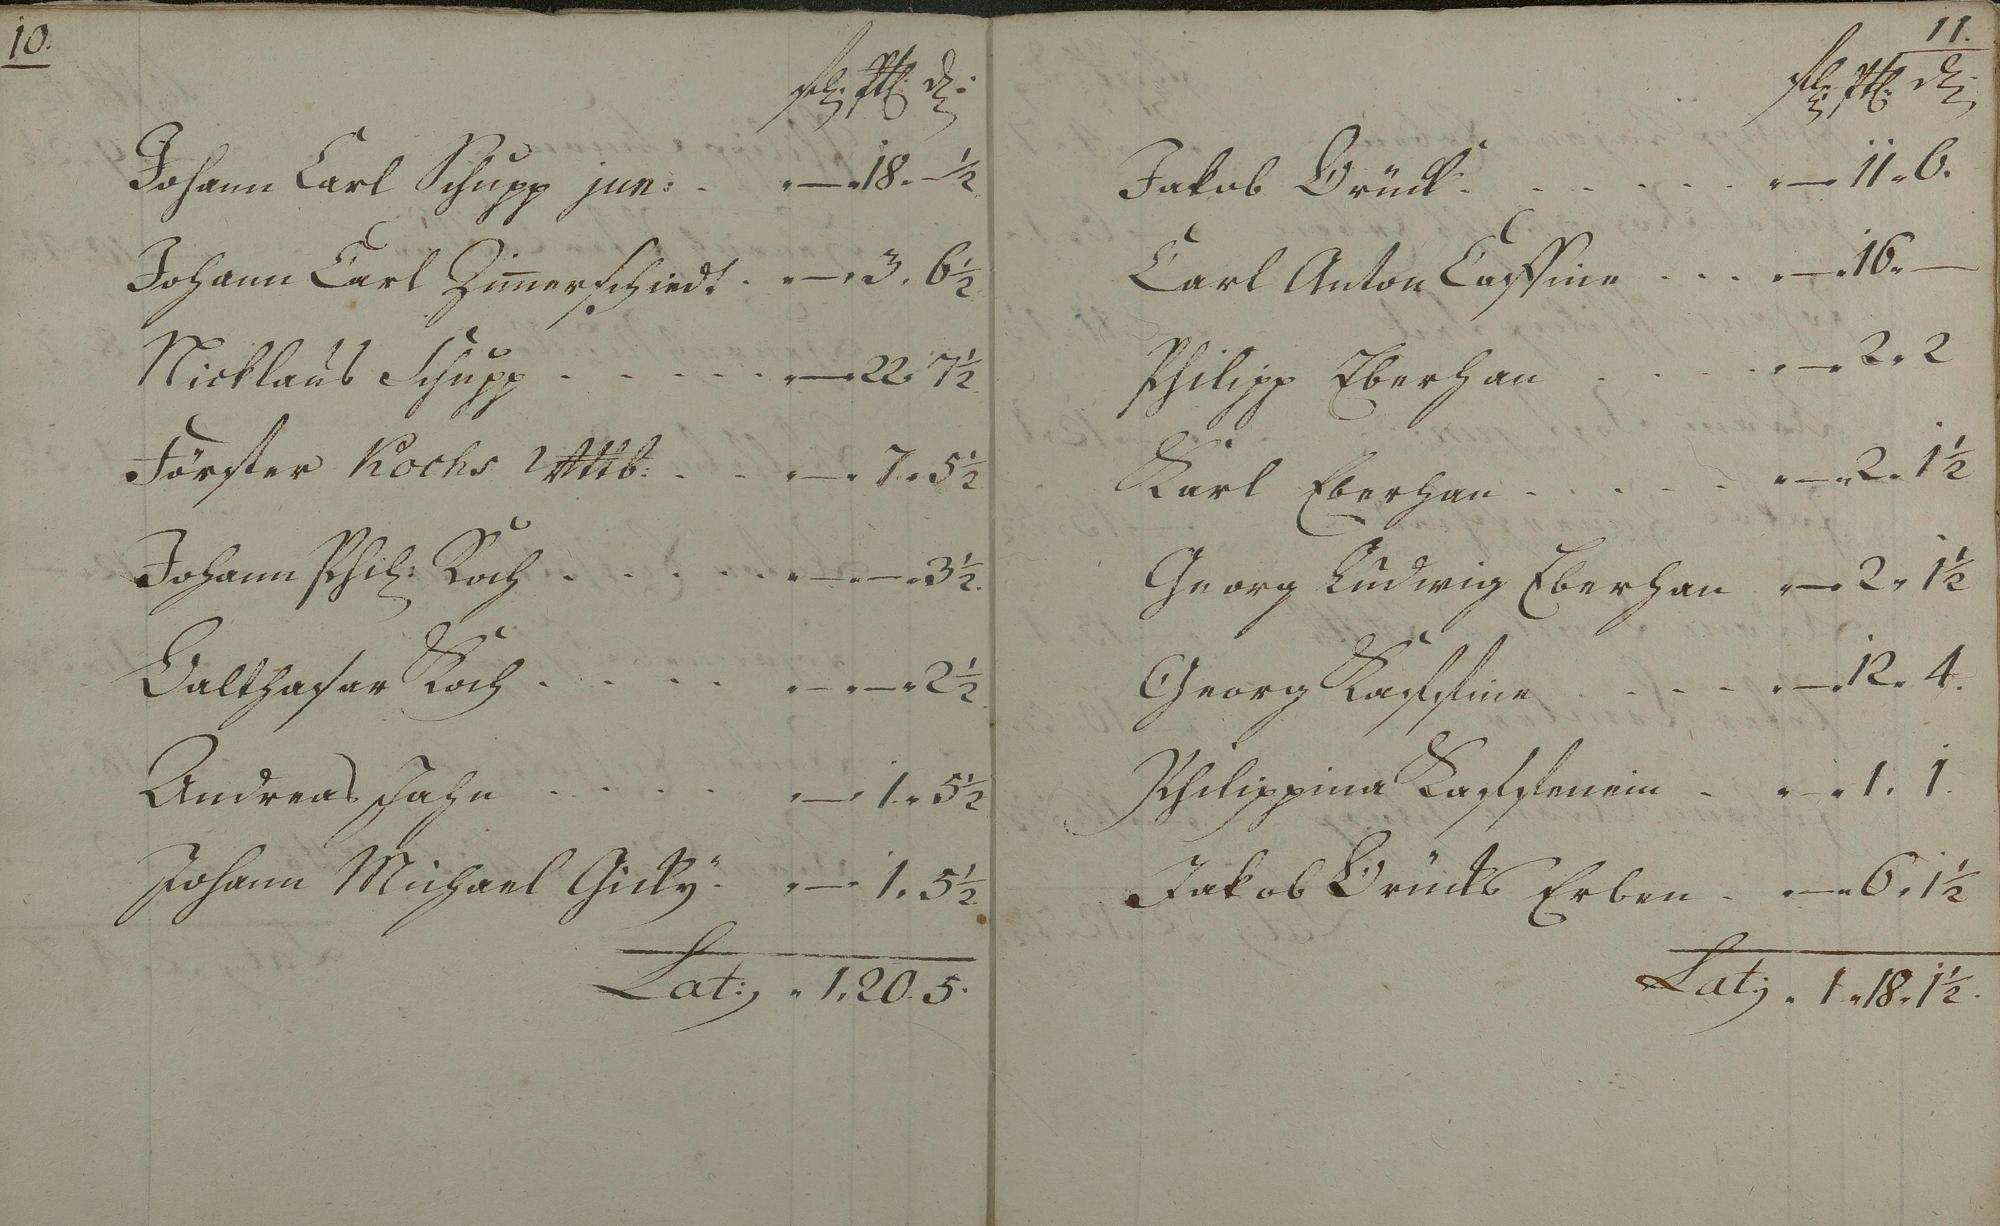 10.
fl: ß: d:
Johann Carl Schupp jun: . „—„18.—½
Johann Carl Zim̄erschiedt . „—„3. 6½
Nicklaus Schupp . . . . . „—„22. 7½
Förster Kochs Wttb: . . „—„7„5½
Johann Phil: Koch . . . . . „—„—„3½.
Balthasar Koch . . . . „—„—„2½
Andreas Jahn . . . . „—„1„5½
Johann Michael Gicky . „—„1.5½
Lat: „1„20.5.
11.
fl: ß: d:
Jakob Brück . . . . . . „—„11„6.
Carl Anton Cassine . . . „—„16„—
Philipp Eberhan . . . . „—„2„2
Karl Eberhan . . . . . „—„2„1½
Georg Ludwig Eberhan „—„2„1½
Georg Kasstine . . . . „—„12„4.
Philippina Kasstenein . „—„1. 1.
Jakob Brücks Erben . „—„6„1½
Lat: „1„18„1½.